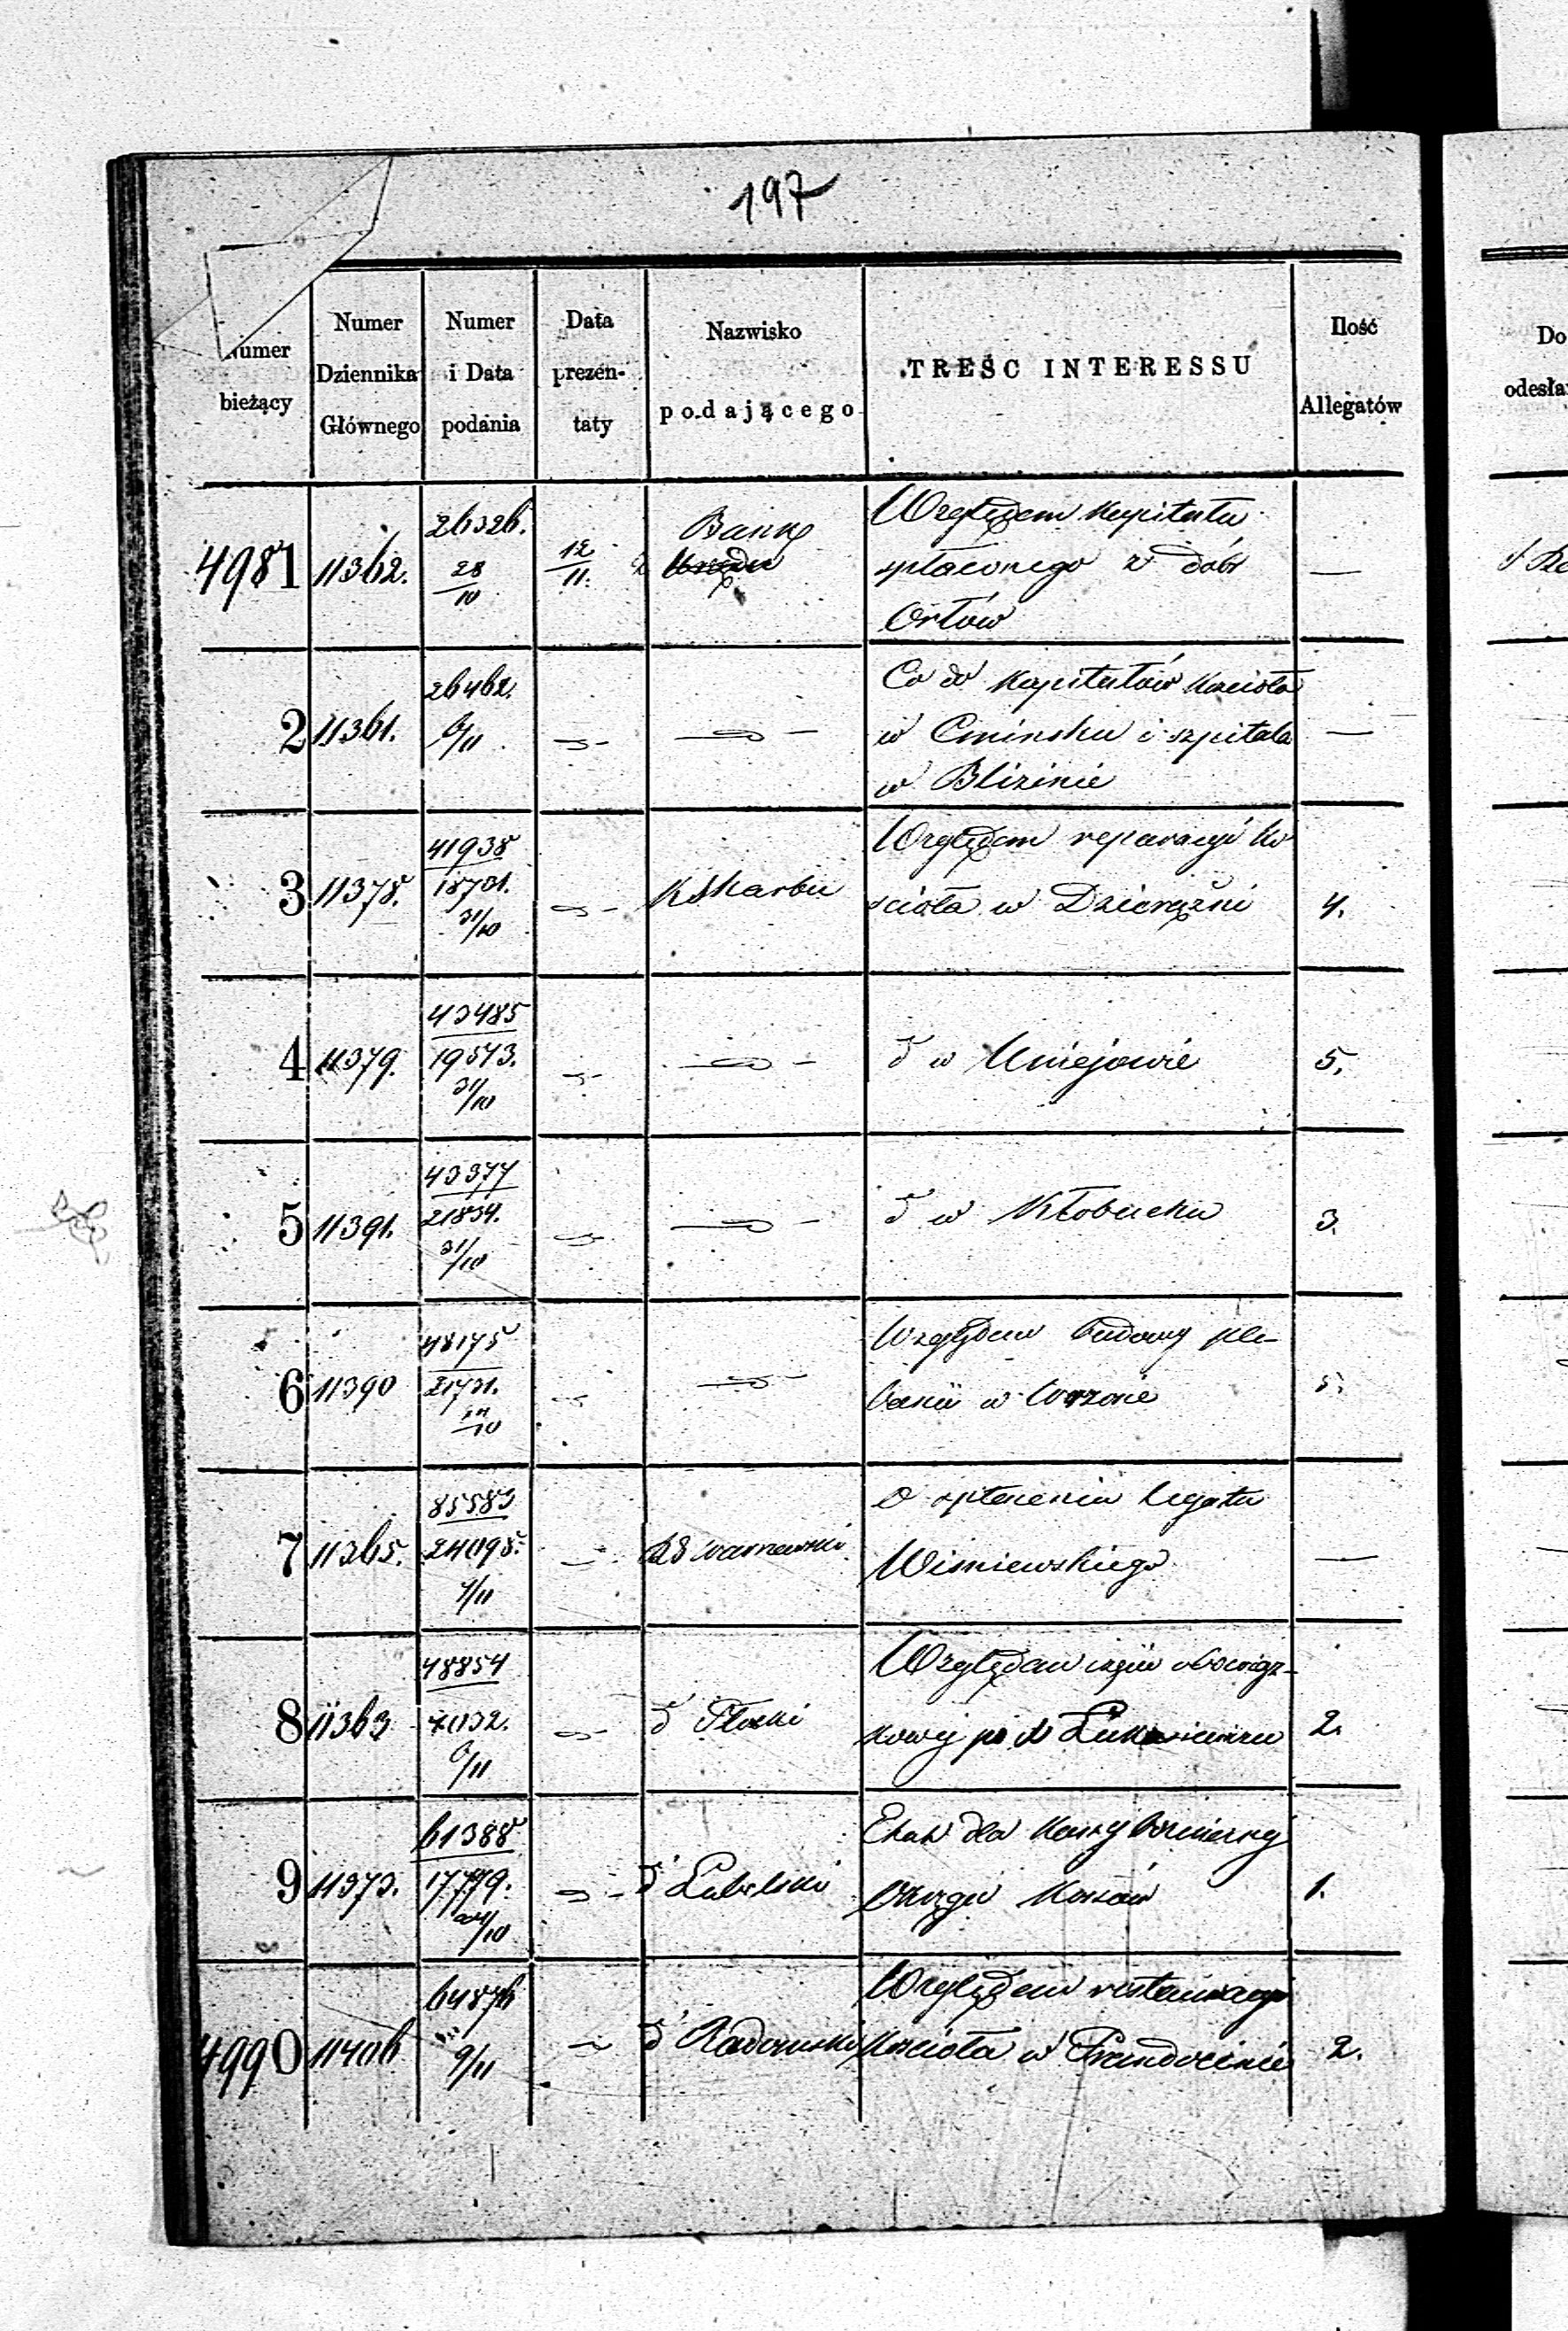 197
Numer bieżący
Numer Dziennika Głównego
Numer i Data podania
Data prezentaty
Nazwisko podającego
TREŚC INTERESSU
Ilość Allegatów
Do
odesła
4981 11362. 26326. 28/10 12/11. Banku Względem Kapitału
spłaconego z dóbr
Orłów —
2 11361. 26462. 6/11 Co do Kapitałów Kościoła
w Cminsku i szpitala
w Bliżinie —
3 11378. 41938 18701. 31/10 K Skarbu Względem reparacyi Ko
scioła w Dzierążni 4.
4 11379. 43485 19573. 31/10 d w Uniejowie 5.
5 11391. 43377 21834. 31/10 d w Kłobucku 3.
6 11390 48175 21731. /10 Względem budowy ple-
banii w 5.
7 11365. 85583 24098. 4/11 O spłacenia Legatu
Wisniewskiego —
8 11363 48854 7032. 6/11 d Płocki Względem obowiąz-
kowej po 2.
9 11373. 61388 17779. /10 d Lubelski Etat dla Kassy
Okręgu 1.
4990 11406 64876 9/11 d Radomski Względem restauracyi
Kościoła w Prandocinie 2.